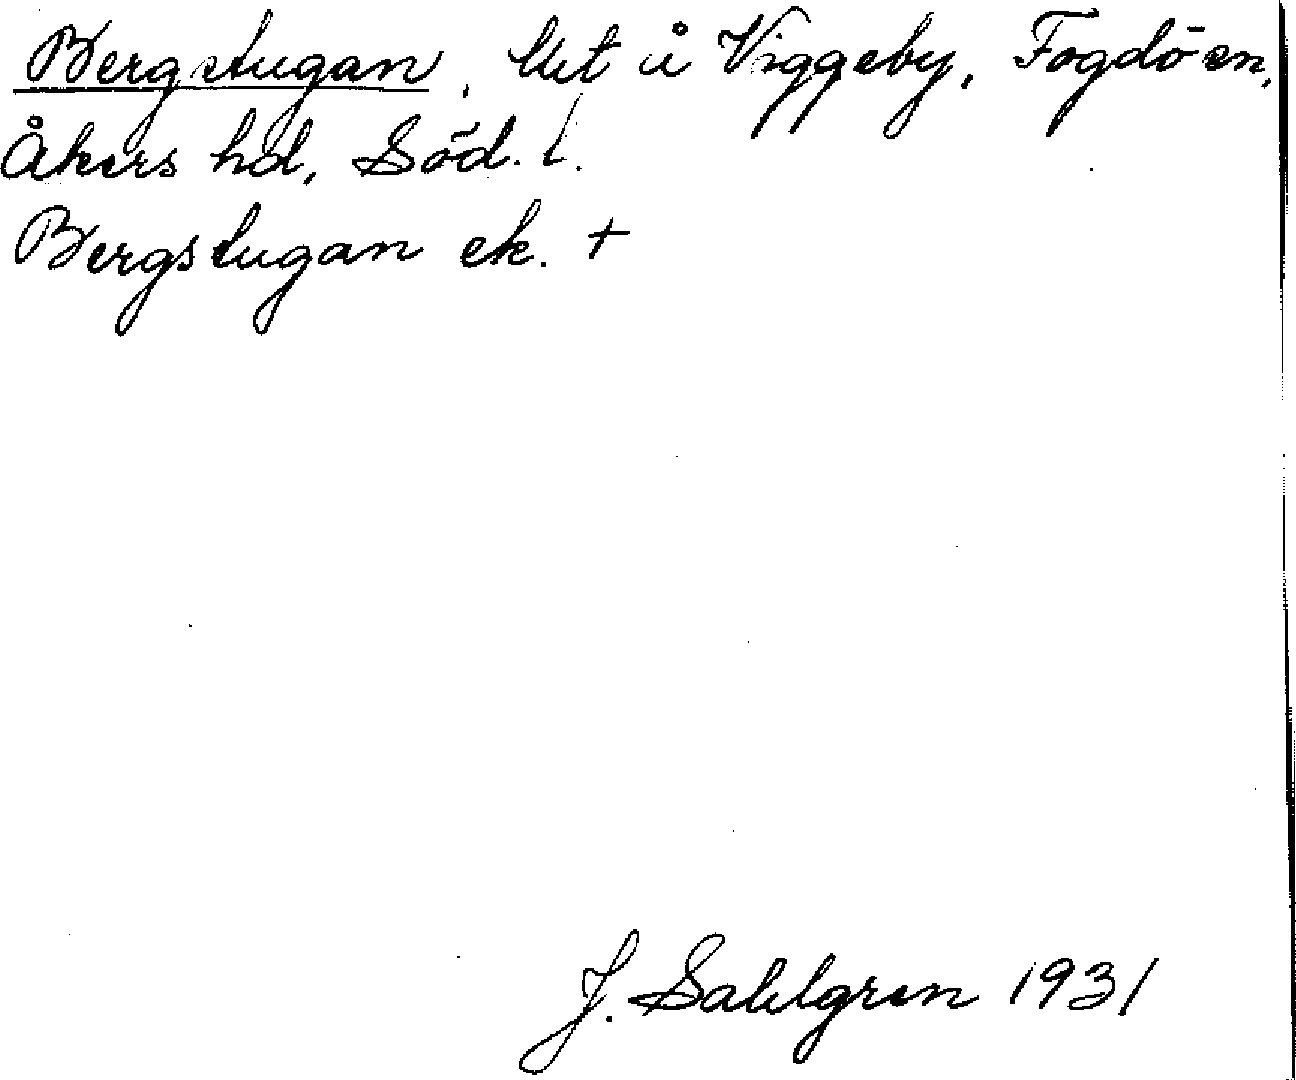 Bergstugan, lht å Viggeby, Fogdöen,
Åkers hd, Söd. l.
Bergstugan ek. +
J. Sahlgren 1931